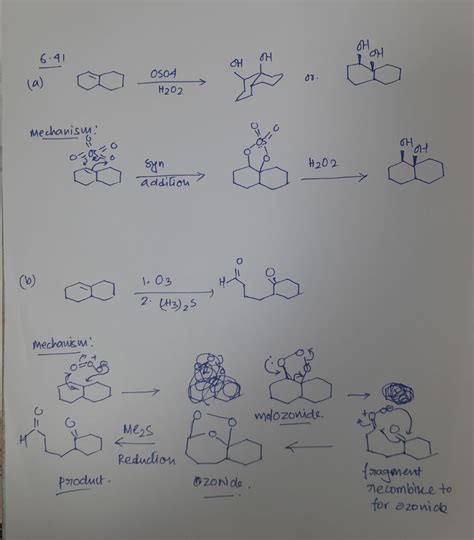 6.41
(a)
OSO4
H2O2
OH
OH
or
OH
OH
Mechanism:
O
O
Os
O
O
Syn
addition
O
O
Os
O
O
H2O2
OH
OH
(b)
1. O3
2. (H3)2S
H
O
O
Mechanism:
O
O
O
O
O
O
molozonide
O
O
H
O
O
Me2S
Reduction
O
O
O
O
O
O
product.
OZONide.
fragment
recombine to
for ozonide